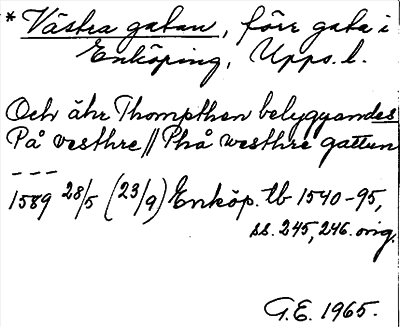 * Västra gatan, förr gata i
Enköping, Upps. l.
Och ähr Thompthen belygyandes
På vesthre // Phå westhre gattun
---
1589 28/5 (23/9) Enköp. tb 1540-95,
ss. 245, 246. orig.
G.E. 1965.